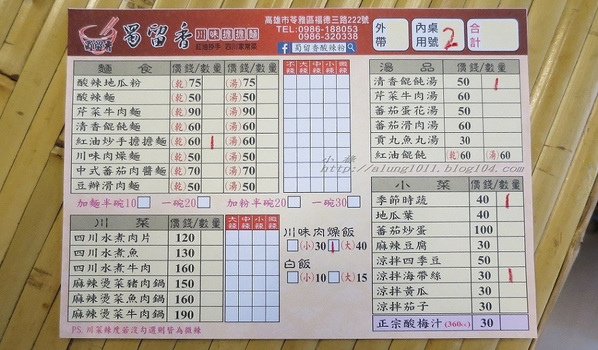 蜀留香
蜀留香
川味擔擔麵
紅油抄手 四川家常菜
高雄市苓雅區福德三路222號
TEL:0986-188053
0986-320338
蜀留香酸辣粉
外帶
內桌用號 2
合計
麵食 價錢/數量 價錢/數量 大辣 中辣 小辣 微辣
酸辣地瓜粉 (乾)75 (湯)75
酸辣麵 (乾)50 (湯)50
芹菜牛肉麵 (乾)90 (湯)90
清香餛飩麵 (乾)60 (湯)60
紅油炒手擔擔麵 (乾)60 1 (湯)60
川味肉燥麵 (乾)50 (湯)50
中式蕃茄肉醬麵 (乾)70 (湯)70
豆瓣滑肉麵 (乾)50 (湯)50
加麵半碗10 一碗20 加粉半碗20 一碗30
湯品 價錢/數量
清香餛飩湯 50 1
芹菜牛肉湯 60
蕃茄蛋花湯 50
蕃茄滑肉湯 60
貢丸魚丸湯 30
紅油餛飩 (乾)60 (湯)60
小菜 價錢/數量
季節時蔬 40 1
地瓜葉 40
蕃茄炒蛋 100
麻辣豆腐 30
涼拌四季豆 50
涼拌海帶絲 30 1
涼拌黃瓜 30
涼拌茄子 30
正宗酸梅汁(360cc) 30
川菜 價錢/數量 大辣 中辣 小辣 微辣
四川水煮肉片 120
四川水煮魚 130
四川水煮牛肉 160
麻辣燙菜豬肉鍋 150
麻辣燙菜魚肉鍋 160
麻辣燙菜牛肉鍋 190
川味肉燥飯
(小)30 1 (大)40
白飯
(小)10 (大)15
PS.川菜辣度若沒勾選則皆為微辣
小蔡
http://alung1011.blog104.com